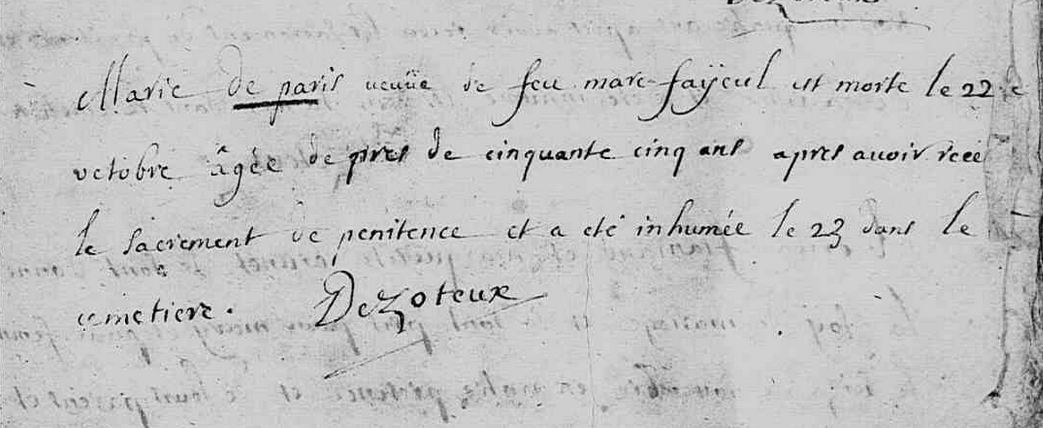 Marie de paris veuüe de feu marc fayeul est morte le 22 e
octobre âgée de pres de cinquante cinq ans apres avoir recû
le sacrement de penitence et a eté inhumée le 23 dans le
cemetiere. Dezoteux